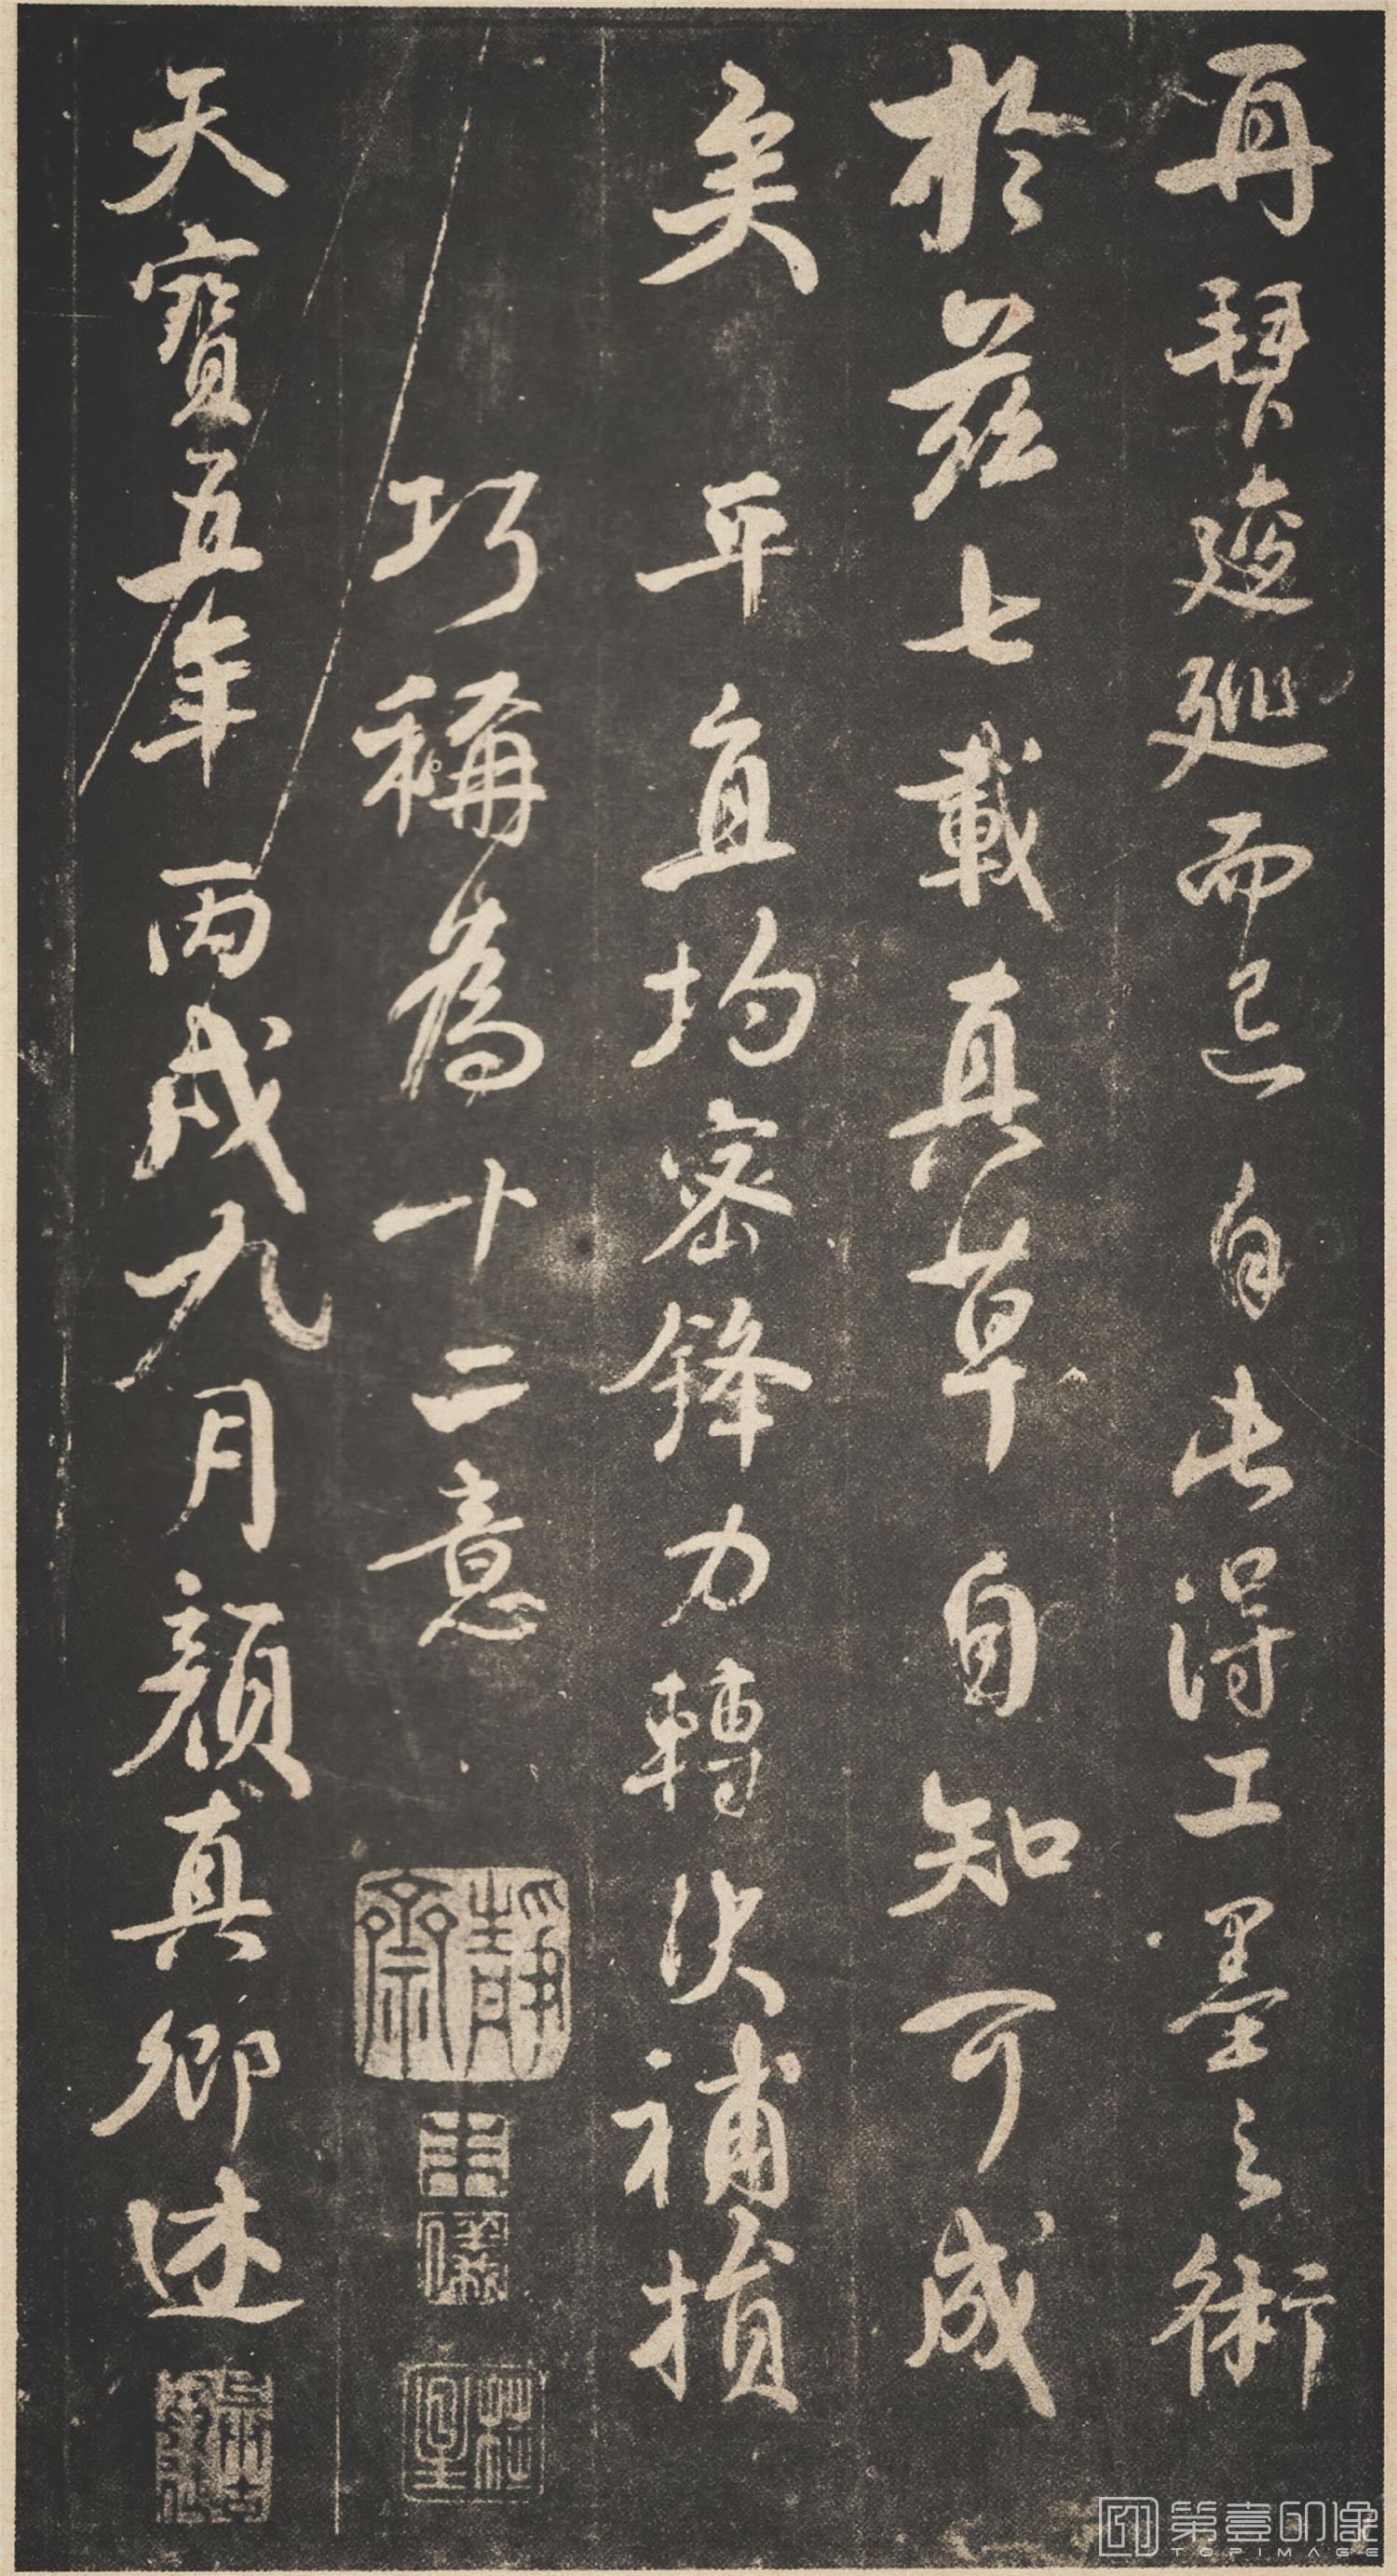 再拜逡巡而已自此得工墨之術
於茲七載真草自知可成
矣 平直均密鋒力轉決補損
巧稱為十二意
天寶五年丙戌九月顏真卿述
靜齋
第壹印像
TOPIMAGE